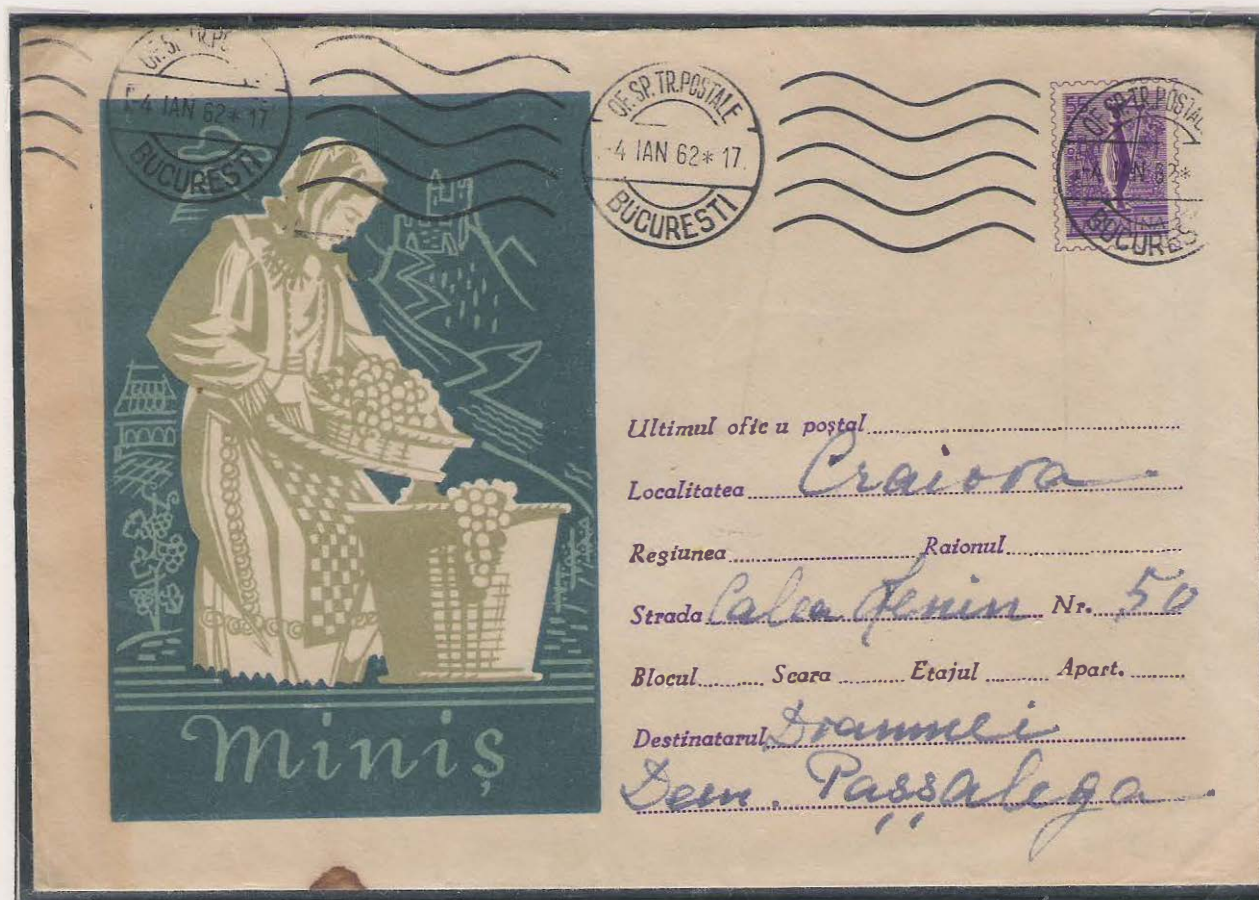 OF. SP. TR. PO
-4 IAN 62 * 17
BUCURESTI
OF. SP. TR. POSTALE
-4 IAN 62 * 17
BUCURESTI
55
OF. SP. TR. POSTAL
-4 IAN 62 *
BUCURES
Miniș
Ultimul ofic u poștal
Localitatea Craiova
Regiunea Raionul
Strada Calea Lenin Nr. 50
Blocul Scara Etajul Apart.
Destinatarul Doamnei
Dem. Pașșalega